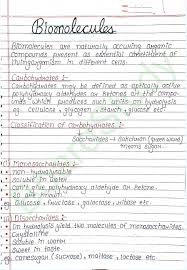 Biomolecules
Biomolecules are naturally occuring organic
compounds present as essential constituent of
living organism in different cells.
Carbohydrates :-
Carbohydrates may be defined as optically active
polyhydroxy aldehydes or ketones or the compo-
unds which produce such units on hydrolysis
eg. Cellulose, glycogen, starch, glucose etc.
Classification of carbohydrates :-
Saccharides → Saccharum (Greek word)
means sugar
(i) Monosaccharides :-
→ non-hydrolysable
→ soluble in water
→ can't give polyhydroxy aldehyde or ketone.
→ 20 are known
eg Glucose, fructose, galactose, ribose, etc.
(ii) Disaccharides :-
→ On hydrolysis yield two molecules of monosaccharides
→ crystalline
→ Soluble in water
→ Sweet in taste
eg (cane sugar) sucrose, maltose, lactose etc